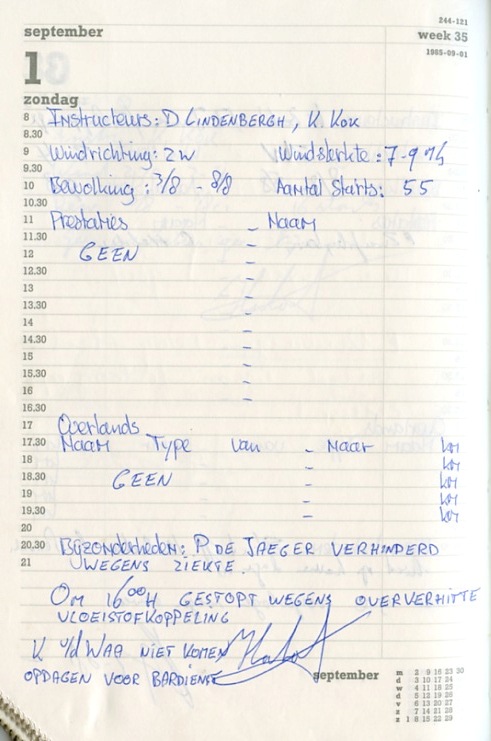 244-121
september week 35
1985-09-01
1
zondag
8 Instructeurs: D LINDENBERGH, K. KOK
8.30
9 Windrichting: ZW Windsterkte: 7-9 m/s
9.30
10 Bewolking: 3/8 - 8/8 Aantal Starts: 55
10.30
11 Prestaties - Naam
11.30 -
12 GEEN -
12.30 -
13 -
13.30 -
14 -
14.30 -
15 -
15.30 -
16 -
16.30
17 Overlands
17.30 Naam Type van - Naar km
18 - km
18.30 GEEN - km
19 - km
19.30 - km
20
20.30 Bijzonderheden: P DE JAEGER VERHINDERD
21 WEGENS ZIEKTE.
Om 16ººH GESTOPT WEGENS OVERVERHITTE
VLOEISTOFKOPPELING
K v/d WAA NIET KOMEN
OPDAGEN VOOR BARDIENST
september
m 2 9 16 23 30
d 3 10 17 24
w 4 11 18 25
d 5 12 19 26
v 6 13 20 27
z 7 14 21 28
z 1 8 15 22 29